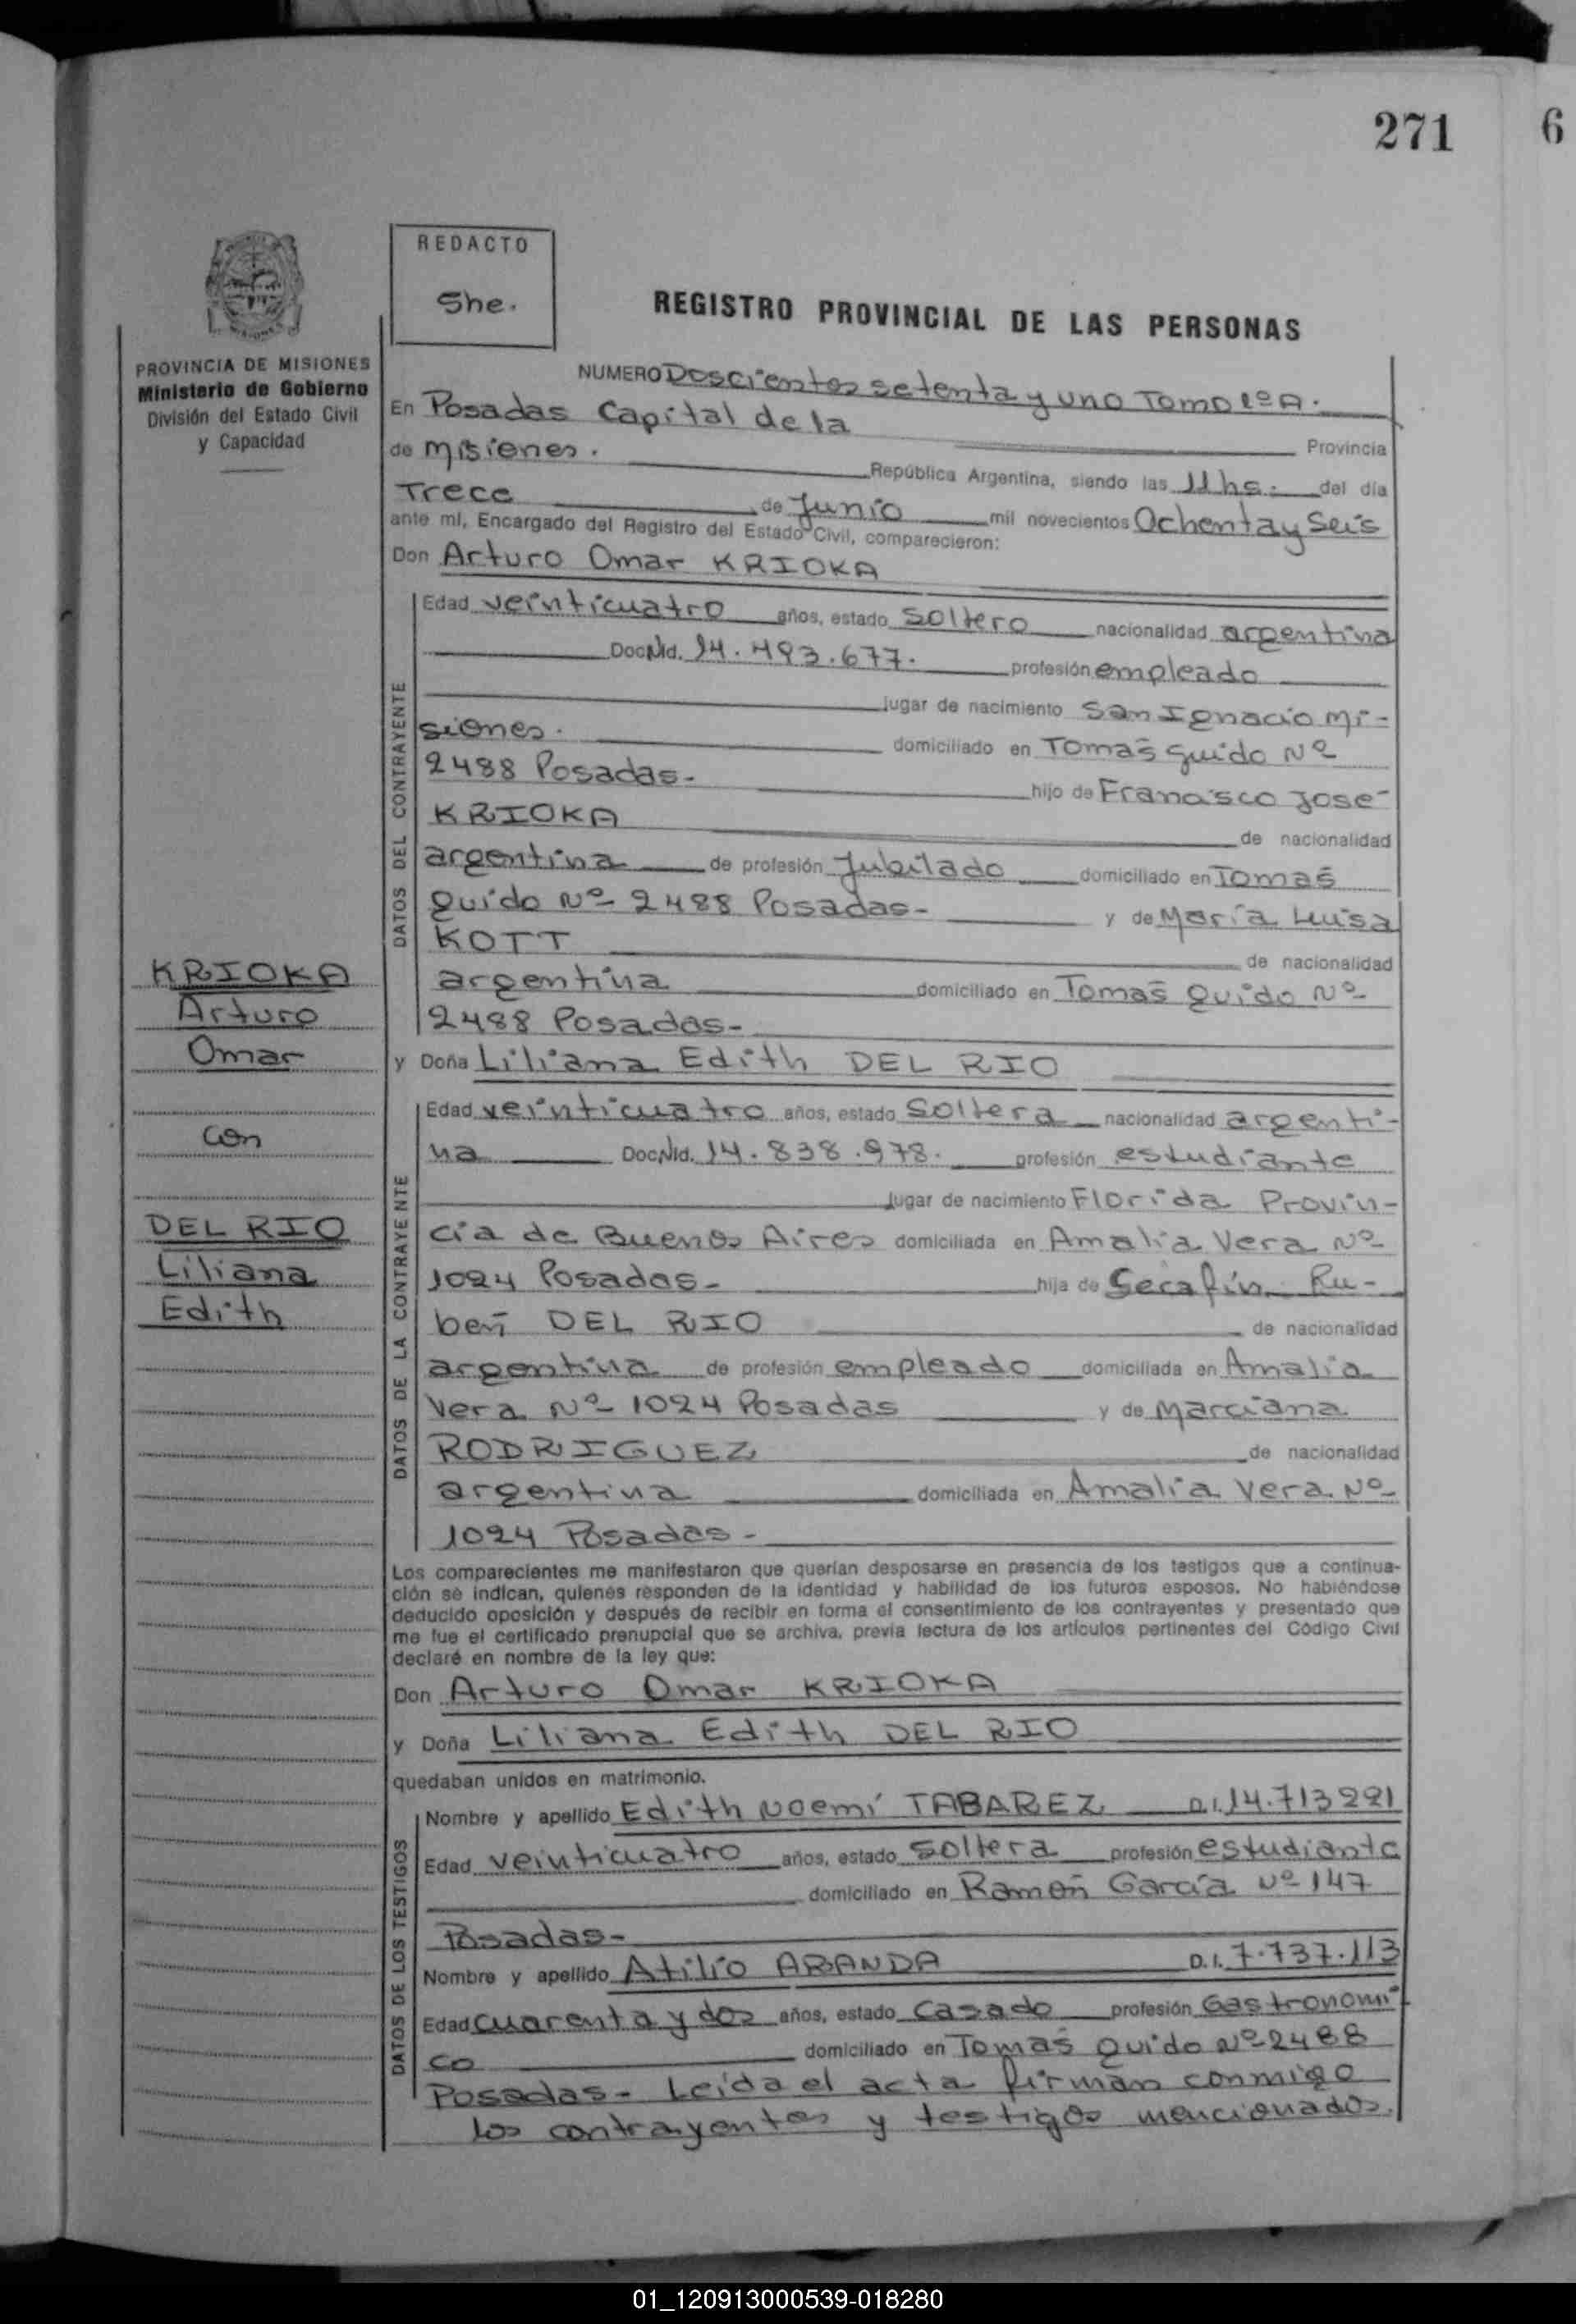 271
6
REDACTO
She.
REGISTRO PROVINCIAL DE LAS PERSONAS
PROVINCIA DE MISIONES
Ministerio de Gobierno
División del Estado Civil
y Capacidad
NUMERO Doscientos setenta y uno Tomo 1º A.
En Posadas Capital de la Provincia
de Misiones. República Argentina, siendo las 11 hs. del día
Trece de Junio mil novecientos Ochenta y Seis
ante mí, Encargado del Registro del Estado Civil, comparecieron:
Don Arturo Omar KRIOKA
DATOS DEL CONTRAYENTE
Edad veinticuatro años, estado Soltero nacionalidad argentina
Doc.Nd. 14.493.677. profesión empleado
lugar de nacimiento San Ignacio Mi-
siones. domiciliado en Tomás Guido Nº
2488 Posadas- hijo de Francisco José
KRIOKA de nacionalidad
argentina de profesión Jubilado domiciliado en Tomás
Guido Nº 2488 Posadas- y de María Luisa
KOTT de nacionalidad
argentina domiciliado en Tomás Guido Nº
2488 Posadas-
KRIOKA
Arturo
Omar
con
DEL RIO
Liliana
Edith
y Doña Liliana Edith DEL RIO
DATOS DE LA CONTRAYENTE
Edad veinticuatro años, estado Soltera nacionalidad argenti-
na Doc.Nd. 14.838.978. profesión estudiante
lugar de nacimiento Florida Provin-
cia de Buenos Aires domiciliada en Amalia Vera Nº
1024 Posadas- hija de Serafín Ru-
bén DEL RIO de nacionalidad
argentina de profesión empleado domiciliada en Amalia
Vera Nº 1024 Posadas y de Marciana
RODRIGUEZ de nacionalidad
argentina domiciliada en Amalia Vera Nº
1024 Posadas-
Los comparecientes me manifestaron que querían desposarse en presencia de los testigos que a continua-
ción se indican, quienes responden de la identidad y habilidad de los futuros esposos. No habiéndose
deducido oposición y después de recibir en forma el consentimiento de los contrayentes y presentado que
me fue el certificado prenupcial que se archiva, previa lectura de los artículos pertinentes del Código Civil
declaré en nombre de la ley que:
Don Arturo Omar KRIOKA
y Doña Liliana Edith DEL RIO
quedaban unidos en matrimonio.
DATOS DE LOS TESTIGOS
Nombre y apellido Edith Noemí TABAREZ D.I. 14.713221
Edad veinticuatro años, estado Soltera profesión estudiante
domiciliado en Ramón García Nº 147
Posadas-
Nombre y apellido Atilio ARANDA D.I. 7.737.113
Edad cuarenta y dos años, estado Casado profesión Gastronómi
co domiciliado en Tomás Guido Nº 2488
Posadas- Leída el acta firman conmigo
los contrayentes y testigos mencionados.
01_120913000539-018280